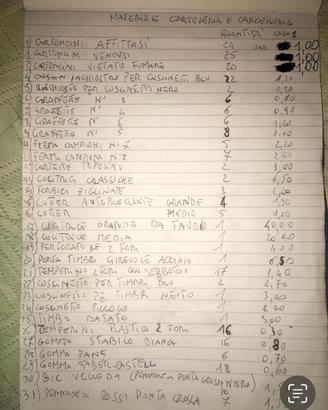 MATERIALE CARTOLERIA E CANCELLERIA
QUANTITÀ CADA 1
1) CARTONCINI AFFITTASI 24 1,00
2) CARTONCINI VENDESI 25 1,00
3) CARTONCINI VIETATO FUMARE 20 1,00
4) INCHIOSTRO PER CUSCINETTI BLU 22 1,20
5) INCHIOSTRO PER CUSCINETTI NERO 2 1,20
6) GRAFFETTE N° 3 6 0,70
7) GRAFFETTE N° 4 6 0,90
8) GRAFFETTE N° 6 6 1,20
9) GRAFFETTE N° 5 8 1,00
10) FERMA CAMPIONI N° 7 5 2,20
11) FERMA CAMPIONI N° 8 7 2,50
2 3,00
CUCITRICI CLASSICHE 2 6,50
FORBICI ZIGRINATE 3 2,00
15) CUTTER AUTOBLOCCANTE GRANDE 4 1,50
16) CUTTER MEDIO 5 1,00
17) CUCITRICE GRANDE DA TAVOLO 1 40,00
18) CUCITRICE MEDIA 1 20,00
19) PERFORATORE 2 FORI 1 4,00
20) PORTA TIMBRI GIREVOLE ACCIAIO 1 6,50
21) TEMPERINO 2 FORI CON SERBATOIO 17 1,40
22) CUSCINETTO PER TIMBRI BLU 2 2,70
23) CUSCINETTO PER TIMBRI NERO 1 3,00
24) CUSCINETTO PICCOLO 1 2,00
25) TIMBRO DATARIO 1 3,00
26) TEMPERINI PLASTICA 2 FORI 16 0,30
27) GOMMA STABILO BIANCA 16 0,80
28) GOMMA PANE 6 0,70
29) GOMMA FABER-CASTELL 18 0,60
30) BIC VELLEDA (PENNARELLI PUNTA GROSSA NERO) 10
31) PENNARELLI ROSSI PUNTA GROSSA 7